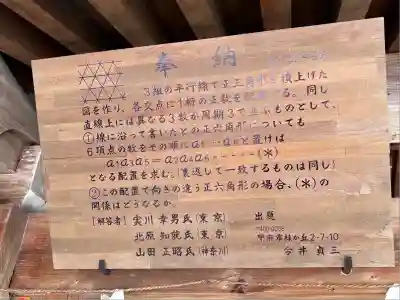 奉納
3組の平行線で正三角形を積上げた
図を作り、各交点に1桁の正数を配する。同じ
直線上には異なる3数が周期3で並ぶものとして、
①線に沿って書いたどの正六角形についても
6項点の数をその順にa₁…a₆と置けば
a₁a₃a₅=a₂a₄a₆-------(*)
となる配置を求む。(裏返して一致するものは同じ)
②この配置で向きの違う正六角形の場合、(*)の
関係はどうなるか。
[解答者] 実川 幸男氏(東京)
北原 知就氏(東京)
山田 正昭氏(神奈川)
出題
甲府市緑が丘2-7-10
今井 貞三